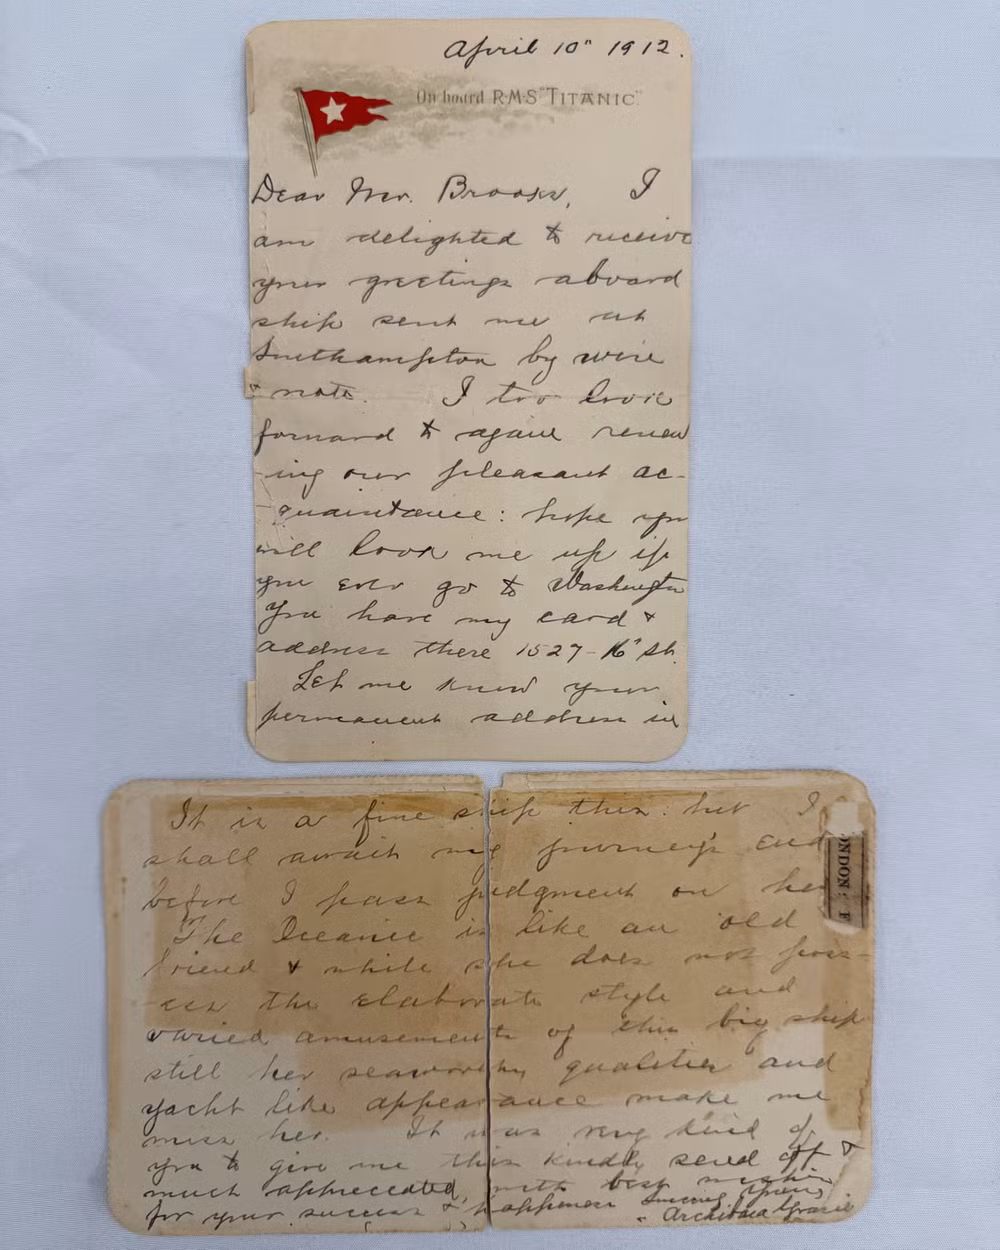 April 10" 1912.
On board R.M.S "TITANIC."
Dear Mr. Brooks, I
am delighted to receive
your greetings aboard
ship sent me at
Southampton by wire
& note. I too look
forward to again renew
-ing our pleasant ac-
-quaintance: hope you
will look me up if
you ever go to Washington
You have my card &
address there 1527-16" St.
Let me know your
permanent address in
It is a fine ship this: but I
shall await my journey's end
before I pass judgment on her
The Oceanic is like an old
friend & while she does not poss-
-ess the elaborate style and
varied amusements of this big ship
still her seaworthy qualities and
yacht like appearance make me
miss her. It was very kind of
you to give me this kindly send off &
much appreciated, with best wishes
for your success & happiness Sincerely yours
Archibald Gracie
ONDON: E